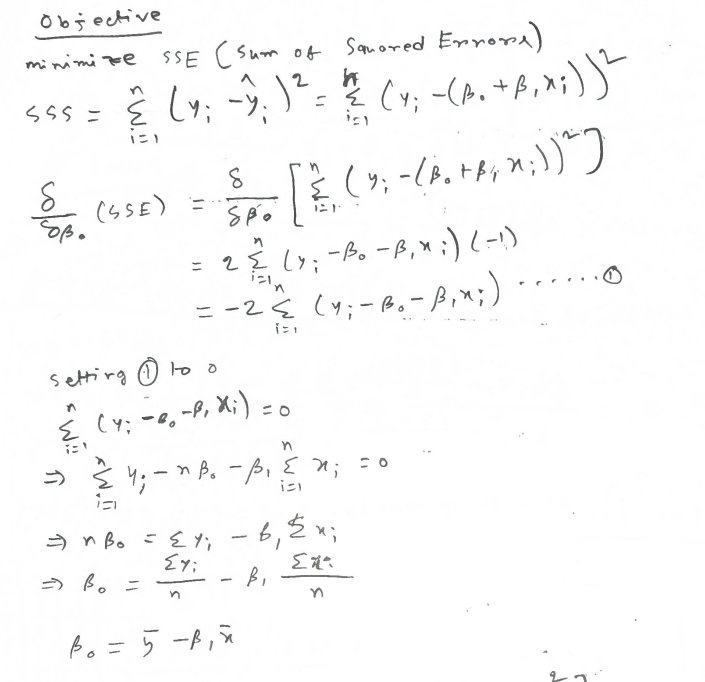 Objective
minimize SSE (Sum of Squared Errors)
SSS = Σ_{i=1}^{n} (y_i - ŷ_i)² = Σ_{i=1}^{n} (y_i - (β₀ + β₁x_i))²
δ/δβ₀ (SSE) = δ/δβ₀ [Σ_{i=1}^{n} (y_i - (β₀ + β₁x_i))²]
= 2 Σ_{i=1}^{n} (y_i - β₀ - β₁x_i) (-1)
= -2 Σ_{i=1}^{n} (y_i - β₀ - β₁x_i) ......①
setting ① to 0
Σ_{i=1}^{n} (y_i - β₀ - β₁x_i) = 0
⇒ Σ_{i=1}^{n} y_i - nβ₀ - β₁ Σ_{i=1}^{n} x_i = 0
⇒ nβ₀ = Σy_i - β₁ Σx_i
⇒ β₀ = Σy_i/n - β₁ Σx_i/n
β₀ = ȳ - β₁x̄